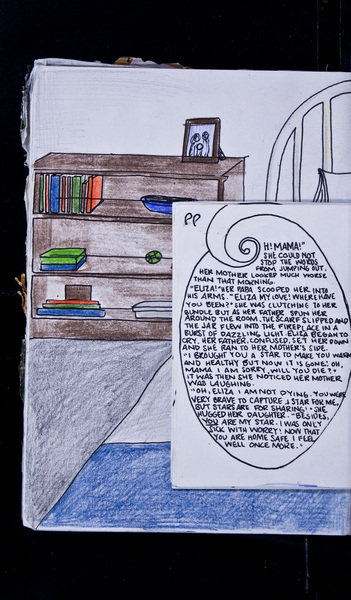 PP
H! MAMA!"
SHE COULD NOT
STOP THE WORDS
FROM JUMPING OUT.
HER MOTHER LOOKED MUCH WORSE
THAN THAT MORNING.
"ELIZA!" HER PAPA SCOOPED HER INTO
HIS ARMS. "ELIZA MY LOVE! WHERE HAVE
YOU BEEN?" SHE WAS CLUTCHING TO HER
BUNDLE BUT AS HER FATHER SPUN HER
AROUND THE ROOM, THE SCARF SLIPPED AND
THE JAR FLEW INTO THE FIREPLACE IN A
BURST OF DAZZLING LIGHT. ELIZA BEGAN TO
CRY. HER FATHER, CONFUSED, SET HER DOWN
AND SHE RAN TO HER MOTHER'S SIDE.
"I BROUGHT YOU A STAR TO MAKE YOU WARM
AND HEALTHY BUT NOW IT IS GONE! OH,
MAMA I AM SORRY, WILL YOU DIE?"
IT WAS THEN SHE NOTICED HER MOTHER
WAS LAUGHING.
"OH, ELIZA I AM NOT DYING. YOU WERE
VERY BRAVE TO CAPTURE A STAR FOR ME,
BUT STARS ARE FOR SHARING." SHE
HUGGED HER DAUGHTER. "BESIDES,
YOU ARE MY STAR. I WAS ONLY
SICK WITH WORRY! NOW THAT
YOU ARE HOME SAFE I FEEL
WELL ONCE MORE."